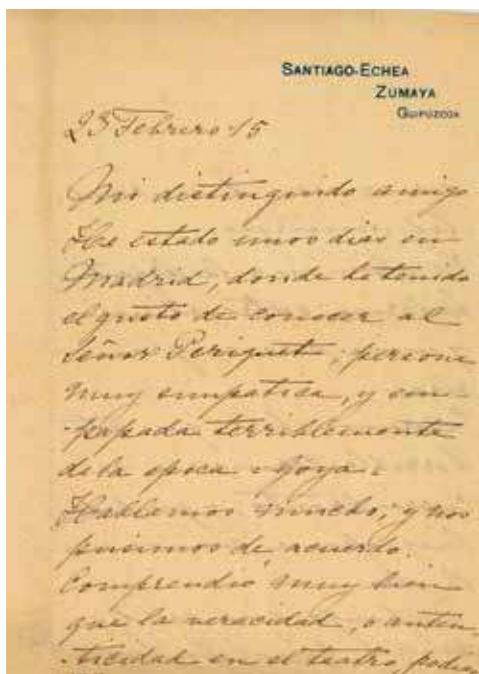 SANTIAGO-ECHEA
ZUMAYA
GUIPÚZCOA
23 Febrero 15
Mi distinguido amigo
He estado unos dias en
Madrid, donde he tenido
el gusto de conocer al
Señor Periquet, persona
muy simpatica, y em-
papada terriblemente
de la epoca Goya.
Hablamos mucho, y nos
pusimos de acuerdo.
Comprendio muy bien
que la veracidad, o auten-
ticidad en el teatro, podia